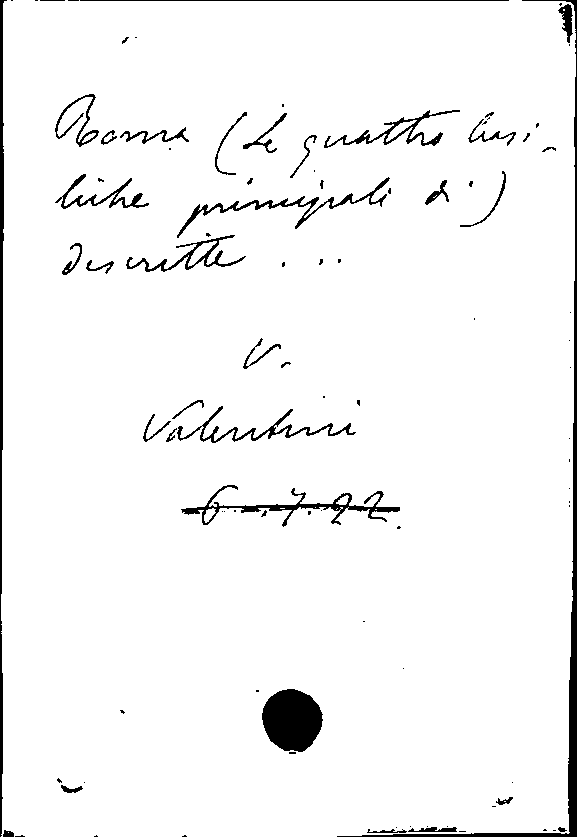 Roma (Le quattro basi-
liche principali di)
descritte ...
V.
Valentini
6.7.22.